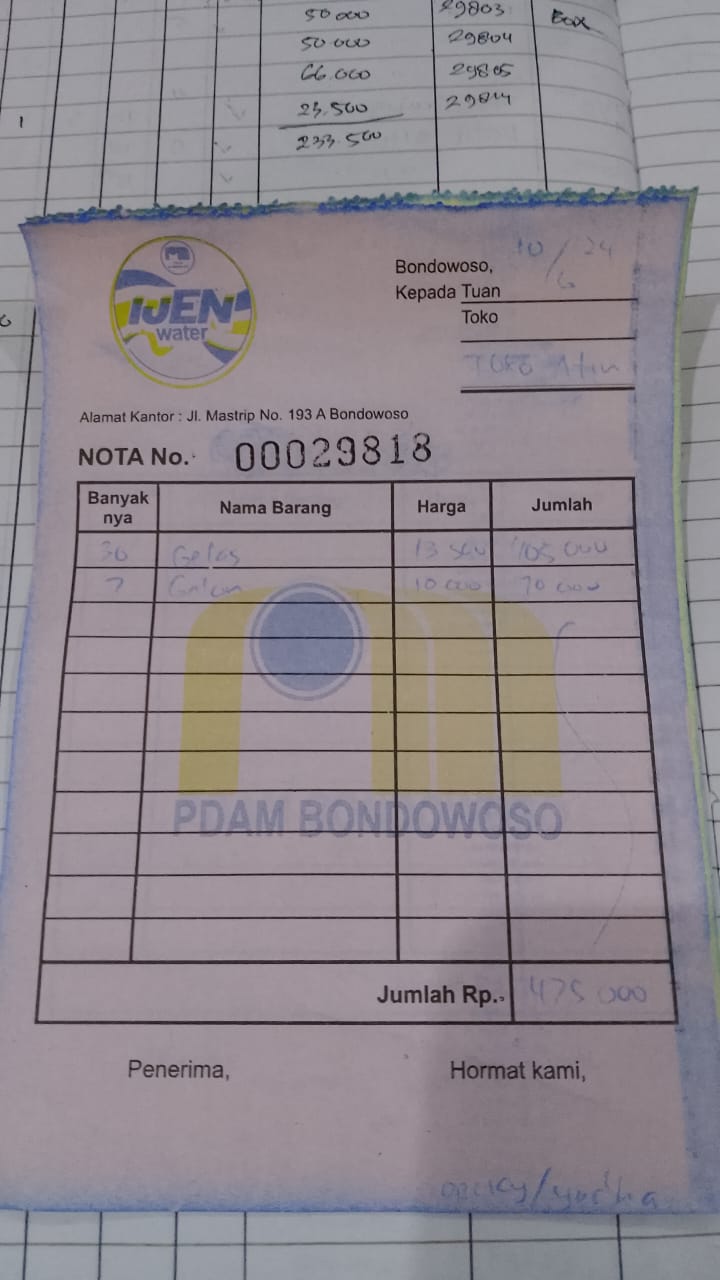 50 000 29803 Box
50 000 29804
66.000 29805
23.500
233.500
1
IJEN
water
Bondowoso, 10/6 24
Kepada Tuan
Toko
TOKO
Alamat Kantor : Jl. Mastrip No. 193 A Bondowoso
NOTA No. 00029818
Banyak nya Nama Barang Harga Jumlah
30 Gelas 13 500 405 000
7 Galon 10 000 70 000
PDAM BONDOWOSO
Jumlah Rp. 475 000
Penerima, Hormat kami,